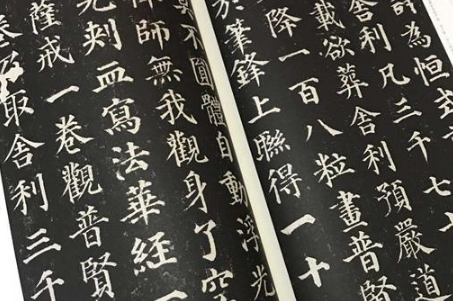 為恒式
舍利凡三千七十
載欲葬舍利預嚴道
降一百八粒畫普賢
於筆鋒上聯得一十
不圓體自動浮光
師無我觀身了空
先刺血寫法華經一
薩戒一卷觀普賢
取舍利三千